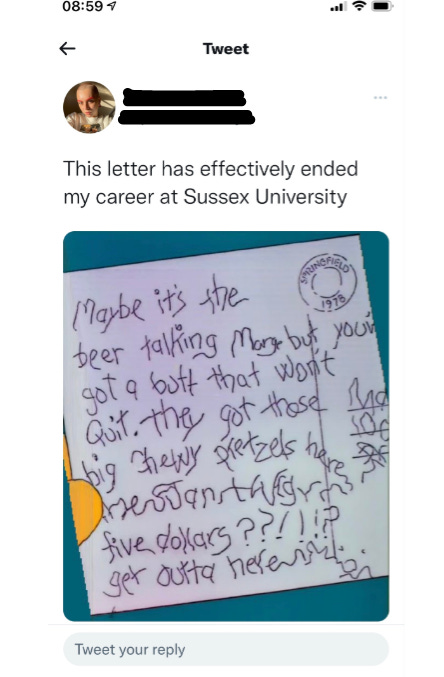 08:59
Tweet
This letter has effectively ended
my career at Sussex University
SPRINGFIELD
1976
Maybe it's the
beer talking Marge but you'v
got a butt that won't
Quit. they got those
big chewy pretzels here
five dollars??!!!?
get outta here
Tweet your reply